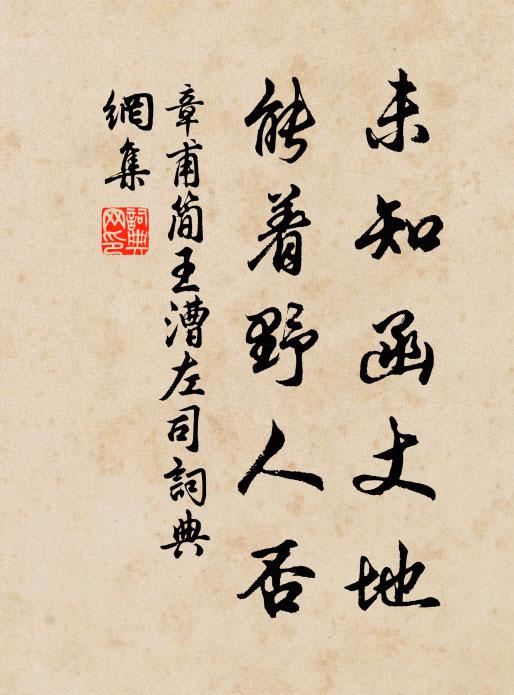 未知函丈地
能着野人否
章甫简王漕左司詞典
網集
詞典網印